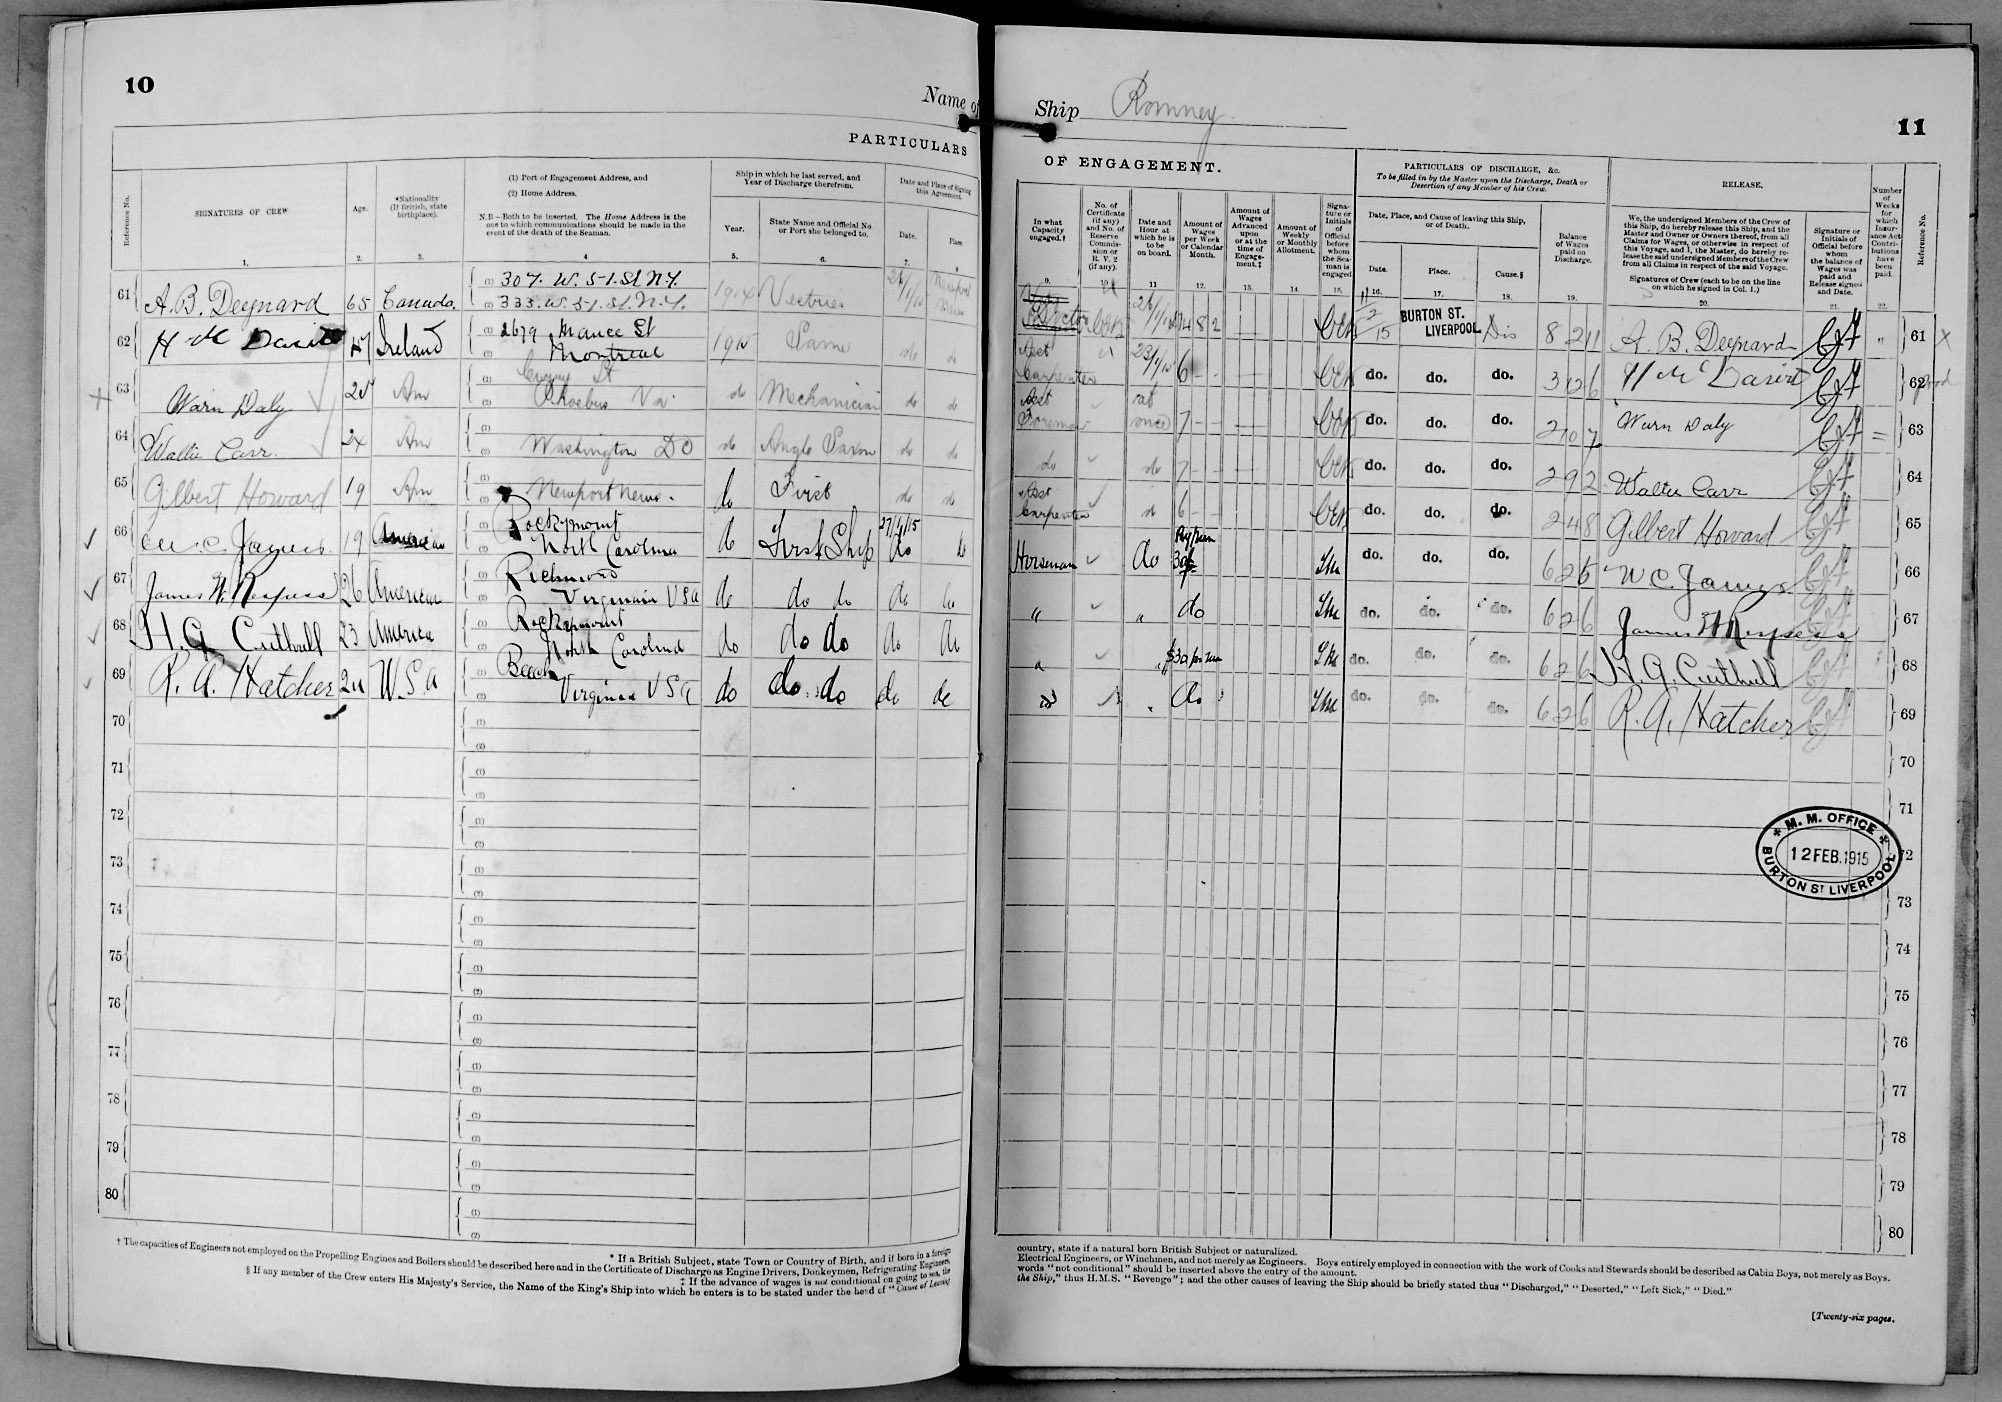 10
Name of
PARTICULARS
Reference No.
SIGNATURES OF CREW.
Age.
*Nationality
(If British, state
birthplace).
(1) Port of Engagement Address, and
(2) Home Address.
N.B.—Both to be inserted. The Home Address is the
one to which communications should be made in the
event of the death of the Seaman.
Ship in which he last served, and
Year of Discharge therefrom.
Year.
State Name and Official No
or Port she belonged to.
Date and Place of Signing
this Agreement.
Date.
Place
1. 2. 3. 4 5. 6. 7. 8.
61 A. B. Deynard 65 Canada. 307. W. 51. St N.Y. 1914
333. W. 51. St. N.Y.
62 Ireland 2679 Mance St 1915 Same do do
Montreal
63 Warn Daly Am Curry St do Mechanician do do
Phoebus Va.
64 Walter Carr 24 Am Washington DC do Anglo Saxon do do
65 Gilbert Howard 19 Am Newport News. do First do do
66 W. C. James 19 American Rockymount do First Ship 27/1/15 do
North Carolina do
67 James W. Respess 26 American Richmond do do do do do
Virginia USA
68 H. G. Cuthrell 23 America Rockymount do do do do do
North Carolina
69 R. A. Hatcher U.S.A Beach do do do do do
Virginia USA
70
71
72
73
74
75
76
77
78
79
80
† The capacities of Engineers not employed on the Propelling Engines and Boilers should be described here and in the Certificate of Discharge as Engine Drivers, Donkeymen, Refrigerating Engineers,
* If a British Subject, state Town or Country of Birth, and if born in a foreign
‡ If the advance of wages is not conditional on going to sea, the
§ If any member of the Crew enters His Majesty's Service, the Name of the King's Ship into which he enters is to be stated under the head of "Cause of Leaving
Ship Romney
11
OF ENGAGEMENT.
PARTICULARS OF DISCHARGE, &c.
To be filled in by the Master upon the Discharge, Death or
Desertion of any Member of his Crew.
RELEASE.
In what
Capacity
engaged.†
No. of
Certificate
(if any)
and No. of
Reserve
Commis-
sion or
R. V. 2
(if any).
Date and
Hour at
which he is
to be
on board.
Amount of
Wages
per Week
or Calendar
Month.
Amount of
Wages
Advanced
upon
or at the
time of
Engage-
ment.‡
Amount of
Weekly
or Monthly
Allotment.
Signa-
ture or
Initials
of
Official
before
whom
the Sea-
man is
engaged.
Date, Place, and Cause of leaving this Ship,
or of Death.
Date.
Place.
Cause.§
Balance
of Wages
paid on
Discharge.
We, the undersigned Members of the Crew of
this Ship, do hereby release this Ship, and the
Master and Owner or Owners thereof, from all
Claims for Wages, or otherwise in respect of
this Voyage, and I, the Master, do hereby re-
lease the said undersigned Members of the Crew
from all Claims in respect of the said Voyage.
Signatures of Crew (each to be on the line
on which he signed in Col. 1.)
Signature or
Initials of
Official before
whom
the balance of
Wages was
paid and
Release signed
and Date.
Number
of
Weeks
for
which
Insur-
ance Act
Contri-
butions
have
been
paid.
Reference No.
9. 10. 11 12. 13. 14. 15. 16. 17. 18. 19. 20. 21. 22.
Doctor 11/2/15 BURTON ST. LIVERPOOL Dis 8 2 11 A. B. Deynard 61
Asst Carpenter 6 do. do. do. 62
Asst Foreman at once 7 do. do. do. 2 10 7 Warn Daly 63
do do 7 do. do. do. 2 9 2 Walter Carr 64
Asst Carpenter do 6 do. do. do. 2 4 8 Gilbert Howard 65
Horseman do do. do. do. W C James 66
" " do do. do. do. 6 2 6 James W Respess 67
" " do. do. do. 6 2 6 H. G. Cuthrell 68
do do. do. do. 6 2 6 R. A. Hatcher 69
70
71
M. M. OFFICE
12 FEB. 1915
BURTON ST LIVERPOOL
72
73
74
75
76
77
78
79
80
country, state if a natural born British Subject or naturalized.
Electrical Engineers, or Winchmen, and not merely as Engineers. Boys entirely employed in connection with the work of Cooks and Stewards should be described as Cabin Boys, not merely as Boys.
words "not conditional" should be inserted above the entry of the amount.
the Ship," thus H.M.S. "Revenge"; and the other causes of leaving the Ship should be briefly stated thus "Discharged," "Deserted," "Left Sick," "Died."
[Twenty-six pages.